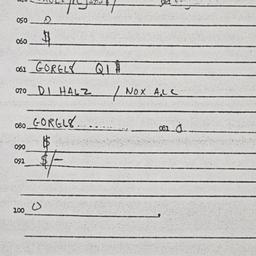 050 0
060 $
061 GORGL8 Q1 $
070 D1 HALZ / NOX A.L.C
080 GORGL8 ........ 081 0
090 $
091 $/-
100 0